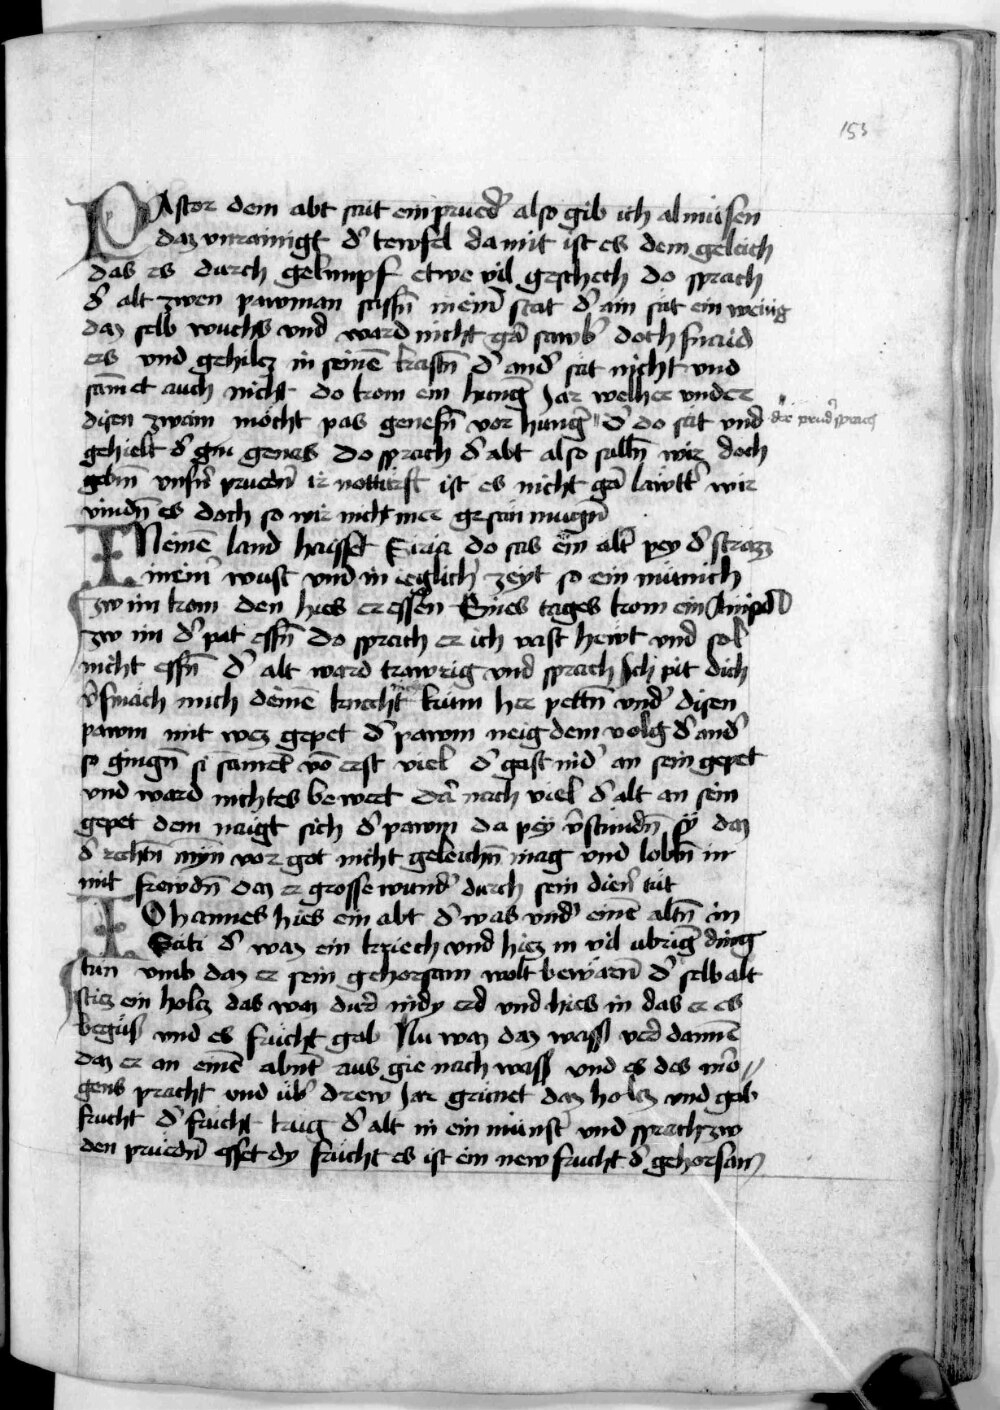 153
PAstor dem abt sait ein prued̕ also gib ich almüsen
daz vnrainigt d̕ tewfel da mit ist es dem geleich
das es durch gelimpf etwe vil geschech do sprach
d̕ alt zwen pawman sassn̄ in ein̄ stat d̕ ain sät ein wenig
daz selb wuchs vnd ward nicht gar sawb̕ doch snaid
ers vnd gehilcz in seinē kastn̄ d̕ and̕ sät nicht vnd
samet auch nicht do kom ein hung̕ Jar welher vnder
disen zwain möcht pas genesn̄ vor hung̕ d̕ do sät vnd
die prud̕ sprach
gehielt d̕ gin genes do sprach d̕ abt also sulln̄ wir doch
gebm̄ vnsn̄ pruedn̄ ir notturft ist es nicht gar lawtt̕ wir
vindn̄ es doch so wir nicht mer gesain mugn̄
IN einē land haisset Siria do sas ein alt̕ pey d̕ strazz
in ein̄ wust vnd in ieglich̕ zeyt so ein münich
zw im kom den hies er essen Eines tages kom ein
zw im d̕ pat essn̄ do sprach er ich vast hewt vnd sol
nicht essn̄ d̕ alt ward trawrig vnd sprach Ich pit dich
v̕smäch mich deinē knecht kum her pettn̄ vnd̕ disen
pawm mit wez gepet d̕ pawm neig dem volg d̕ and̕
so gingn̄ si samet vō erst viel d̕ gast nid̕ an sein gepet
vnd ward nichtes bewert dar nach viel d̕ alt an sein
gepet dem naigt sich d̕ pawm da pey v̕stundn̄ sy daz
d̕ rechtn̄ myn vor got nicht geleichn̄ mag vnd lobtn̄ in
mit frewdn̄ daz er grosse wund̕ durch sein dien̕ tüt
IOhannes hies ein abt d̕ was vnd̕ einē altn̄ in
Siti d̕ waz ein kriech vnd hiez in vil übrig̕ ding
tun vmb daz er sein gehorsam wolt bewärn̄ d̕ selb alt
stiez ein holcz das waz dürr in dy erd vnd hies in das er es
begüss vnd es frücht gab Nu waz daz wass̕ verr dannē
daz er an einē abnt̕ aus gie nach wass̕ vnd es des mor
gens pracht vnd üb̕ drew Jar grünet daz holcz vnd gab
frucht d̕ frücht trug d̕ alt in ein münst̕ vnd sprach zw
den pruedn̄ esset dy frücht es ist ein new frucht d̕ gehorsam